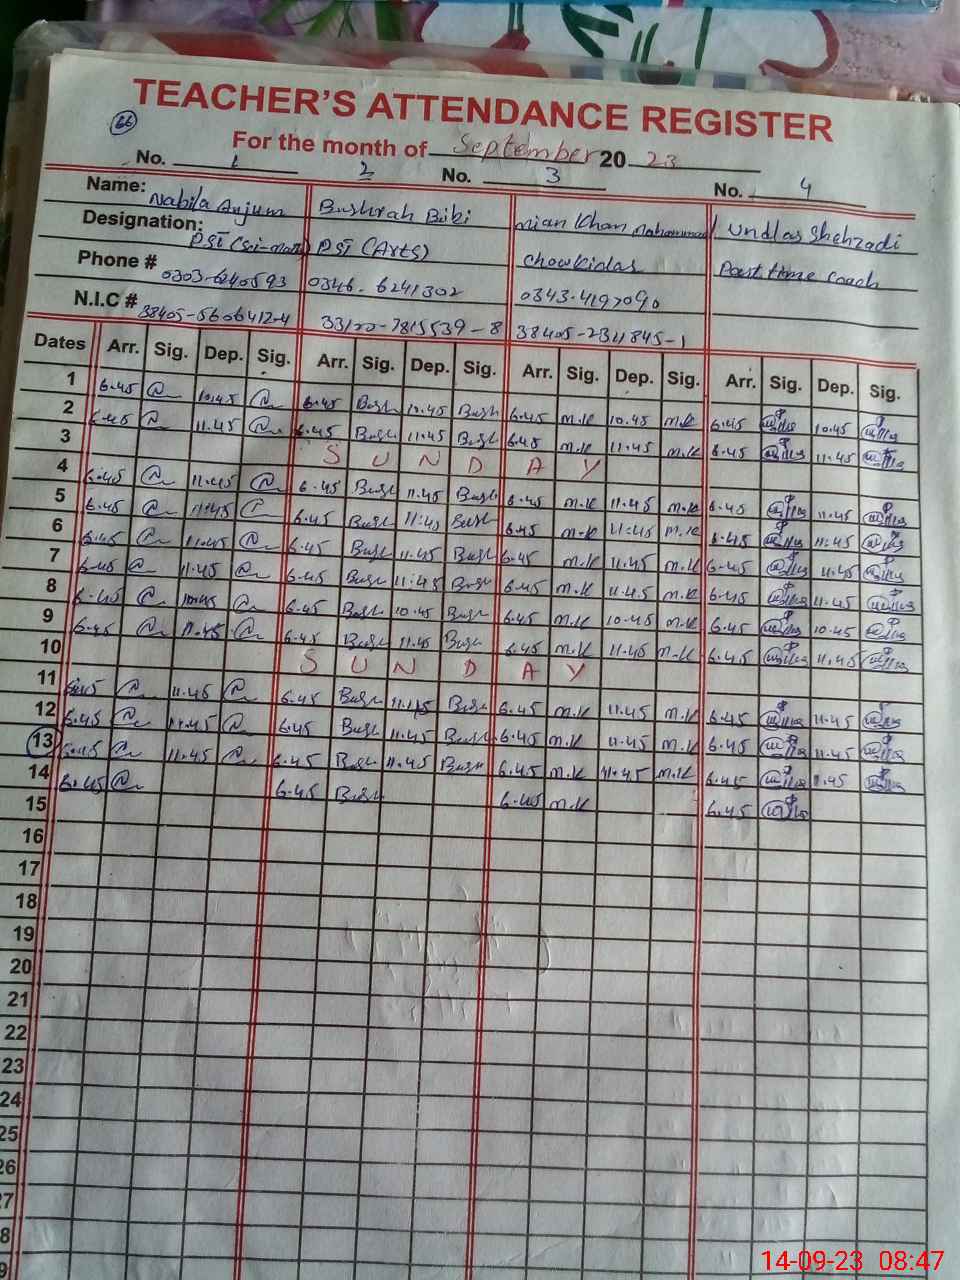 TEACHER'S ATTENDANCE REGISTER
66
For the month of September 20 23
No. 1 2 No. 3 No. 4
Name: Nabila Anjum Bushrah Bibi mian Khan Mohammad Undlas Shehzadi
Designation: PST (Sci-math) PST (Arts) chowkidar Part time coach
Phone # 0303-6240593 0346.6241302 0343.4197090
N.I.C # 38405-5606412-4 33100-7815539-8 38405-2311845-1
Dates Arr. Sig. Dep. Sig. Arr. Sig. Dep. Sig. Arr. Sig. Dep. Sig. Arr. Sig. Dep. Sig.
1 6.45 10.45 6.45 Bush 10.45 Bush 6.45 m.k 10.45 m.k 6.45 10.45
2 6.45 11.45 6.45 Bush 11.45 Bush 6.45 m.k 11.45 m.k 6.45 11.45
3 S U N D A Y
4 6.45 11.45 6.45 Bush 11.45 Bush 6.45 m.k 11.45 m.k 6.45 11.45
5 6.45 11.45 6.45 Bush 11.45 Bush 6.45 m.k 11.45 m.k 6.45 11.45
6 6.45 11.45 6.45 Bush 11.45 Bush 6.45 m.k 11.45 m.k 6.45 11.45
7 6.45 11.45 6.45 Bush 11.45 Bush 6.45 m.k 11.45 m.k 6.45 11.45
8 6.45 10.45 6.45 Bush 10.45 Bush 6.45 m.k 10.45 m.k 6.45 10.45
9 6.45 11.45 6.45 Bush 11.45 Bush 6.45 m.k 11.45 m.k 6.45 11.45
10 S U N D A Y
11 6.45 11.45 6.45 Bush 11.45 Bush 6.45 m.k 11.45 m.k 6.45 11.45
12 6.45 11.45 6.45 Bush 11.45 Bush 6.45 m.k 11.45 m.k 6.45 11.45
13 6.45 11.45 6.45 Bush 11.45 Bush 6.45 m.k 11.45 m.k 6.45 11.45
14 6.45 6.45 Bush 6.45 m.k 6.45
15
16
17
18
19
20
21
22
23
24
25
26
27
8
9
14-09-23 08:47